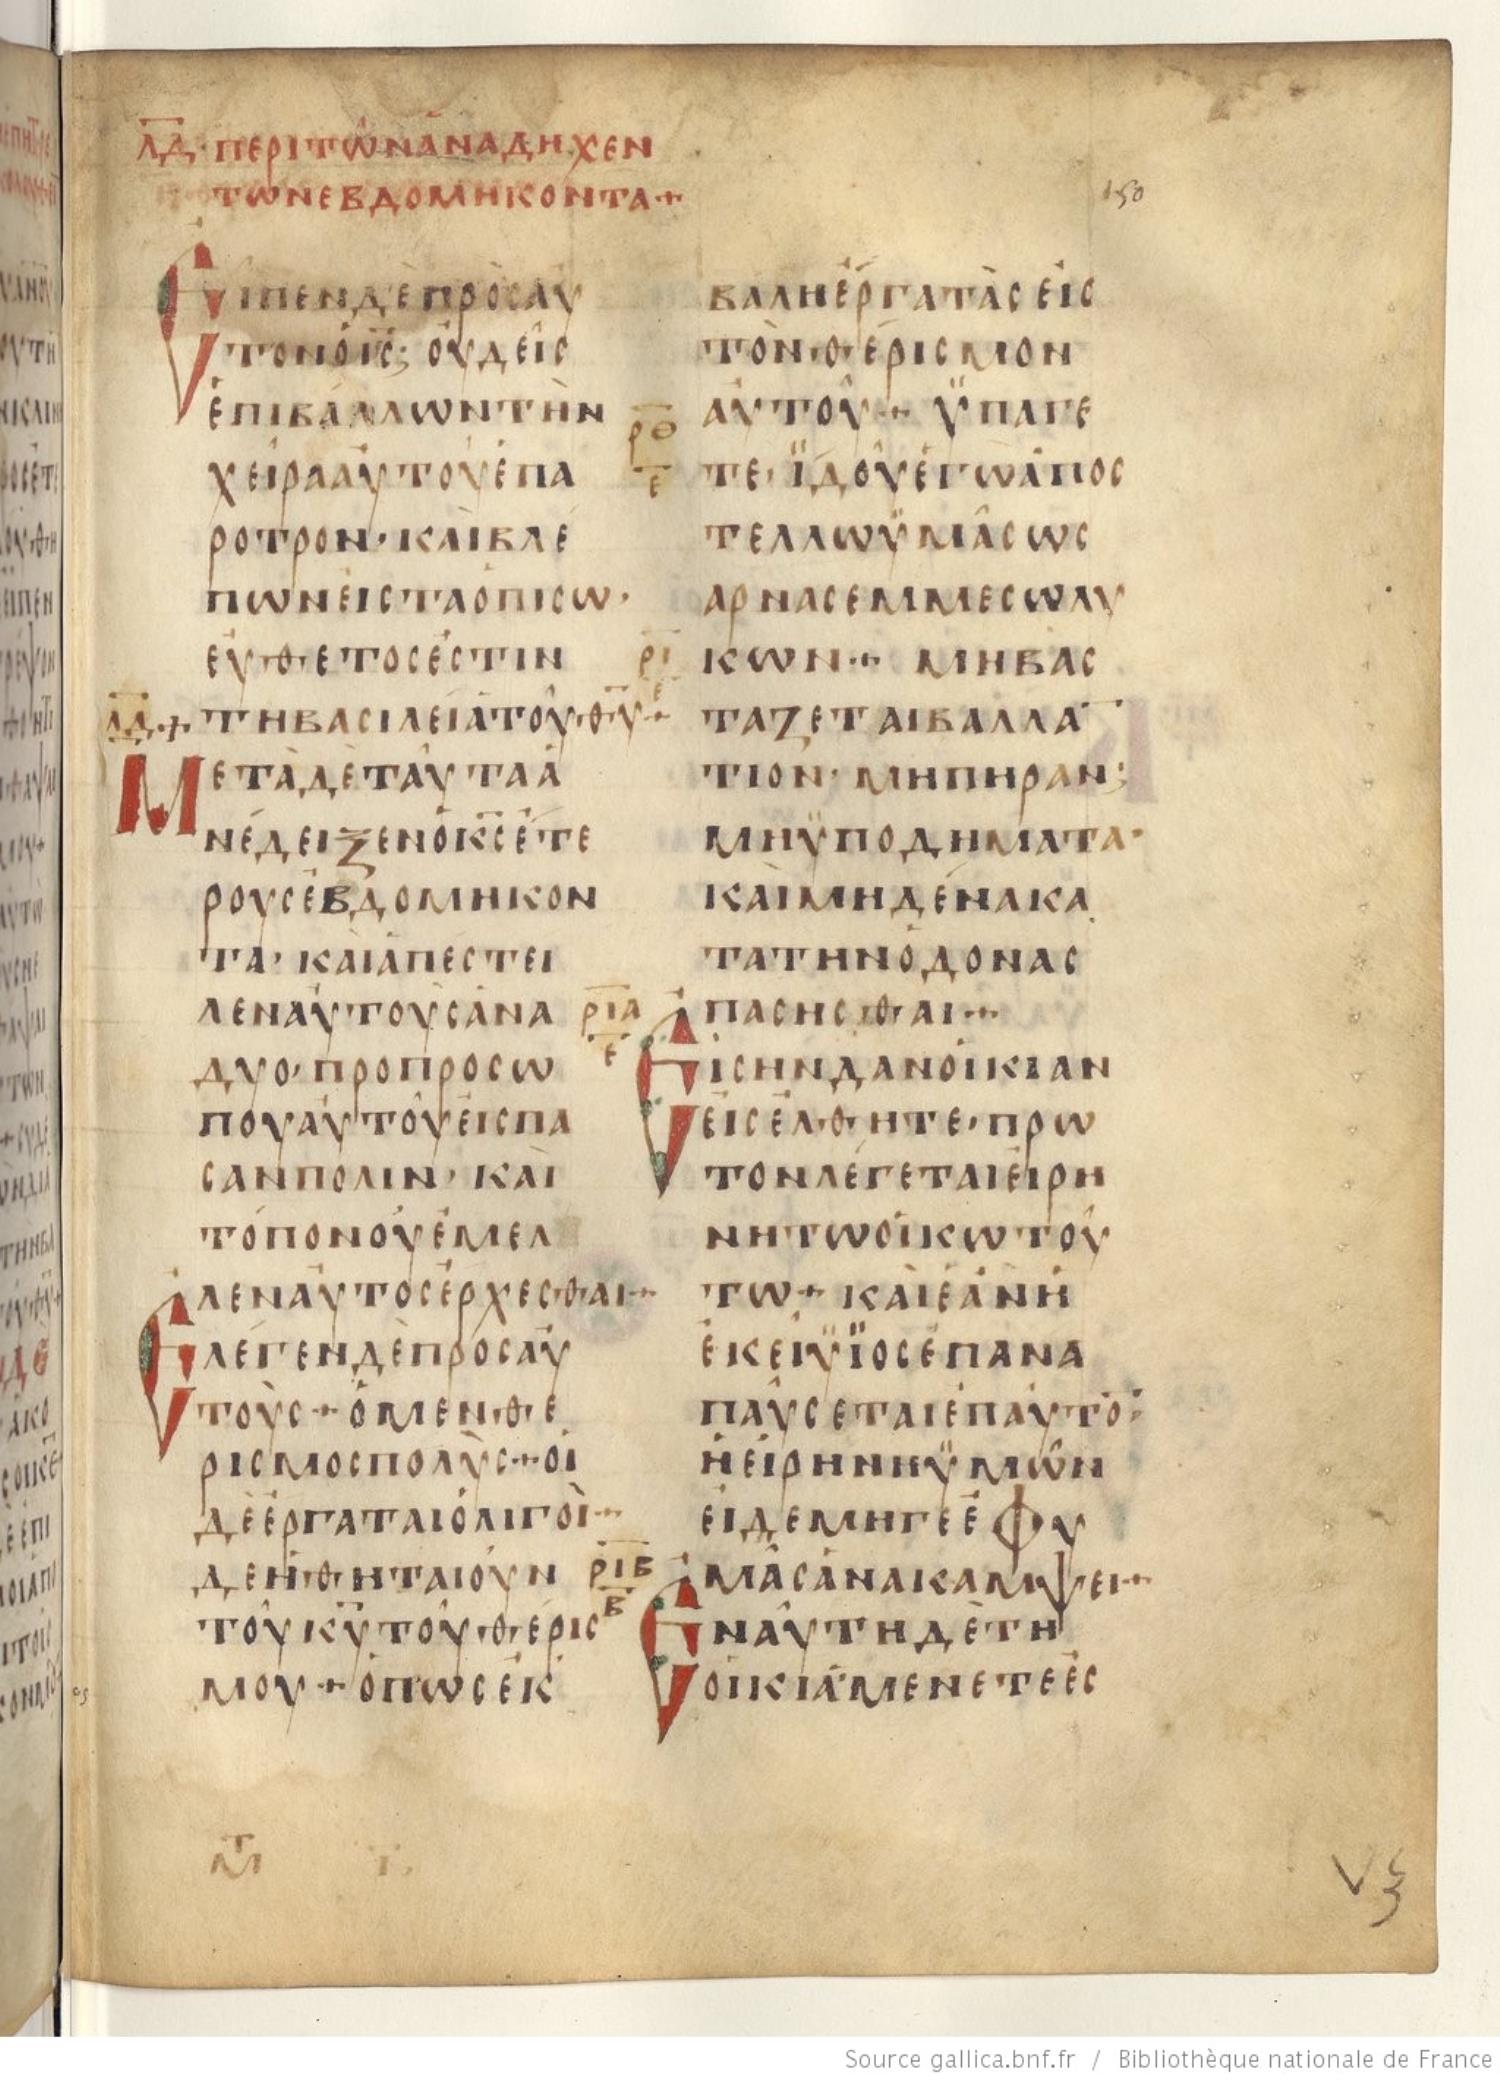 ΛΔ· ΠΕΡΙΤΩΝΑΝΑΔΗΧΕΝ
ΤΩΝΕΒΔΟΜΗΚΟΝΤΑ·+
150
ΕΙΠΕΝΔΕΠΡΟΣΑΥ
ΤΟΝΟΙΣ; ΟΥΔΕΙΣ
ΕΠΙΒΑΛΛΩΝΤΗΝ
ΧΕΙΡΑΑΥΤΟΥΕΠΑ
ΡΟΤΡΟΝ· ΚΑΙΒΛΕ
ΠΩΝΕΙΣΤΑΟΠΙΣΩ·
ΕΥΘΕΤΟΣΕΣΤΙΝ
ΛΔ·+ ΤΗΒΑΣΙΛΕΙΑΤΟΥΘΥ+
ΜΕΤΑΔΕΤΑΥΤΑΑ
ΝΕΔΕΙΞΕΝΟΚΣΕΤΕ
ΡΟΥΣΕΒΔΟΜΗΚΟΝ
ΤΑ· ΚΑΙΑΠΕΣΤΕΙ
ΛΕΝΑΥΤΟΥΣΑΝΑ
ΔΥΟ· ΠΡΟΠΡΟΣΩ
ΠΟΥΑΥΤΟΥΕΙΣΠΑ
ΣΑΝΠΟΛΙΝ· ΚΑΙ
ΤΟΠΟΝΟΥΕΜΕΛ
ΛΕΝΑΥΤΟΣΕΡΧΕΣΘΑΙ·+
ΕΛΕΓΕΝΔΕΠΡΟΣΑΥ
ΤΟΥΣ+ ΟΜΕΝΘΕ
ΡΙΣΜΟΣΠΟΛΥΣ·+ΟΙ
ΔΕΕΡΓΑΤΑΙΟΛΙΓΟΙ·+
ΔΕΗΘΗΤΑΙΟΥΝ
ΤΟΥΚΥΤΟΥΘΕΡΙΣ
ΜΟΥ+ ΟΠΩΣΕΚ
ΒΑΛΗΕΡΓΑΤΑΣΕΙΣ
ΤΟΝΘΕΡΙΣΜΟΝ
ΡΘ Ε ΑΥΤΟΥ·+ ΫΠΑΓΕ
ΤΕ· ΪΔΟΥΕΓΩΑΠΟΣ
ΤΕΛΛΩΫΜΑΣΩΣ
ΑΡΝΑΣΕΜΜΕΣΩΛΥ
ΡΙ Ε ΚΩΝ·+ ΜΗΒΑΣ
ΤΑΖΕΤΑΙΒΑΛΛΑ
ΤΙΟΝ· ΜΗΠΗΡΑΝ;
ΜΗΫΠΟΔΗΜΑΤΑ·
ΚΑΙΜΗΔΕΝΑΚΑ
ΤΑΤΗΝΟΔΟΝΑΣ
ΡΙΑ Ε ΠΑΣΗΣΘΑΙ·+
ΕΙΣΗΝΔΑΝΟΙΚΙΑΝ
ΕΙΣΕΛΘΗΤΕ· ΠΡΩ
ΤΟΝΛΕΓΕΤΑΙΕΙΡΗ
ΝΗΤΩΟΙΚΩΤΟΥ
ΤΩ+ ΚΑΙΕΑΝΗ
ΕΚΕΙΫΪΟΣΕΠΑΝΑ
ΠΑΥΣΕΤΑΙΕΠΑΥΤΟ
ΗΕΙΡΗΝΗΫΜΩΝ
ΕΙΔΕΜΗΓΕΕΦΥ
ΡΙΒ Β ΜΑΣΑΝΑΚΑΜΨΕΙ·+
ΕΝΑΥΤΗΔΕΤΗ
ΟΙΚΙΑΜΕΝΕΤΕΕΣ
Source gallica.bnf.fr / Bibliothèque nationale de France